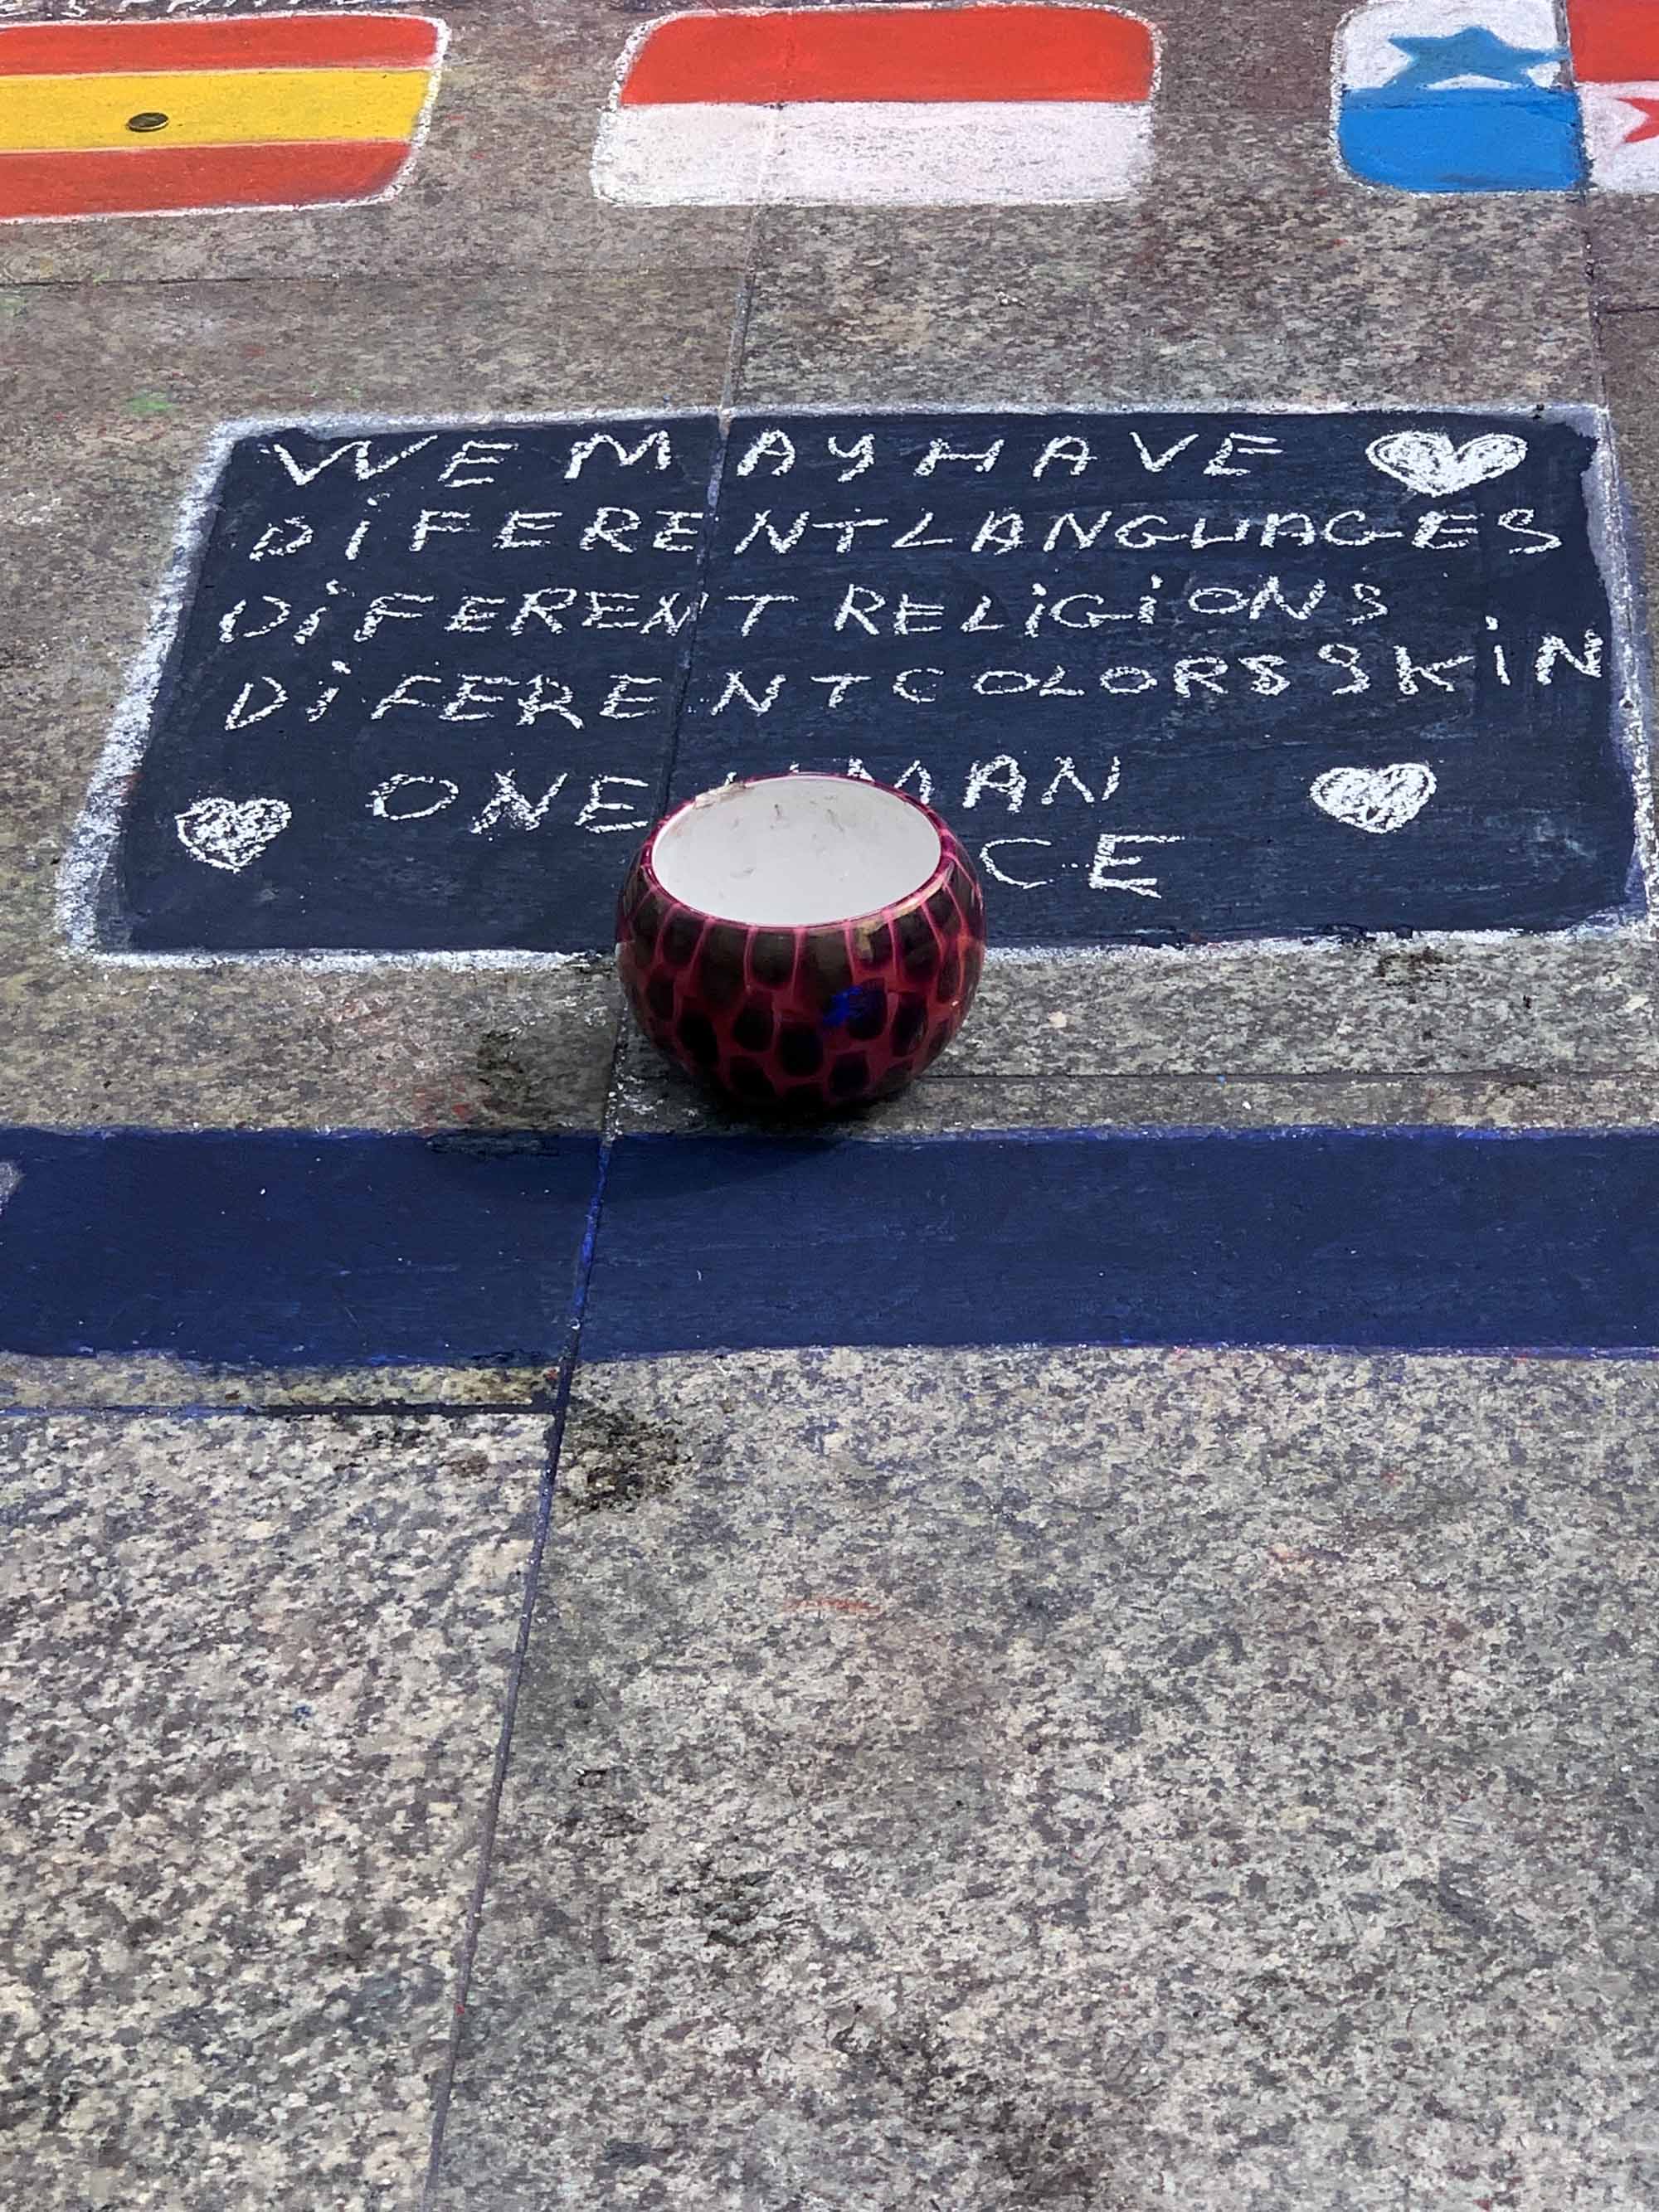 WE MAY HAVE
DiFERENT LANGUAGES
DiFERENT RELiGiONS
DiFERENT COLORS SKiN
ONE